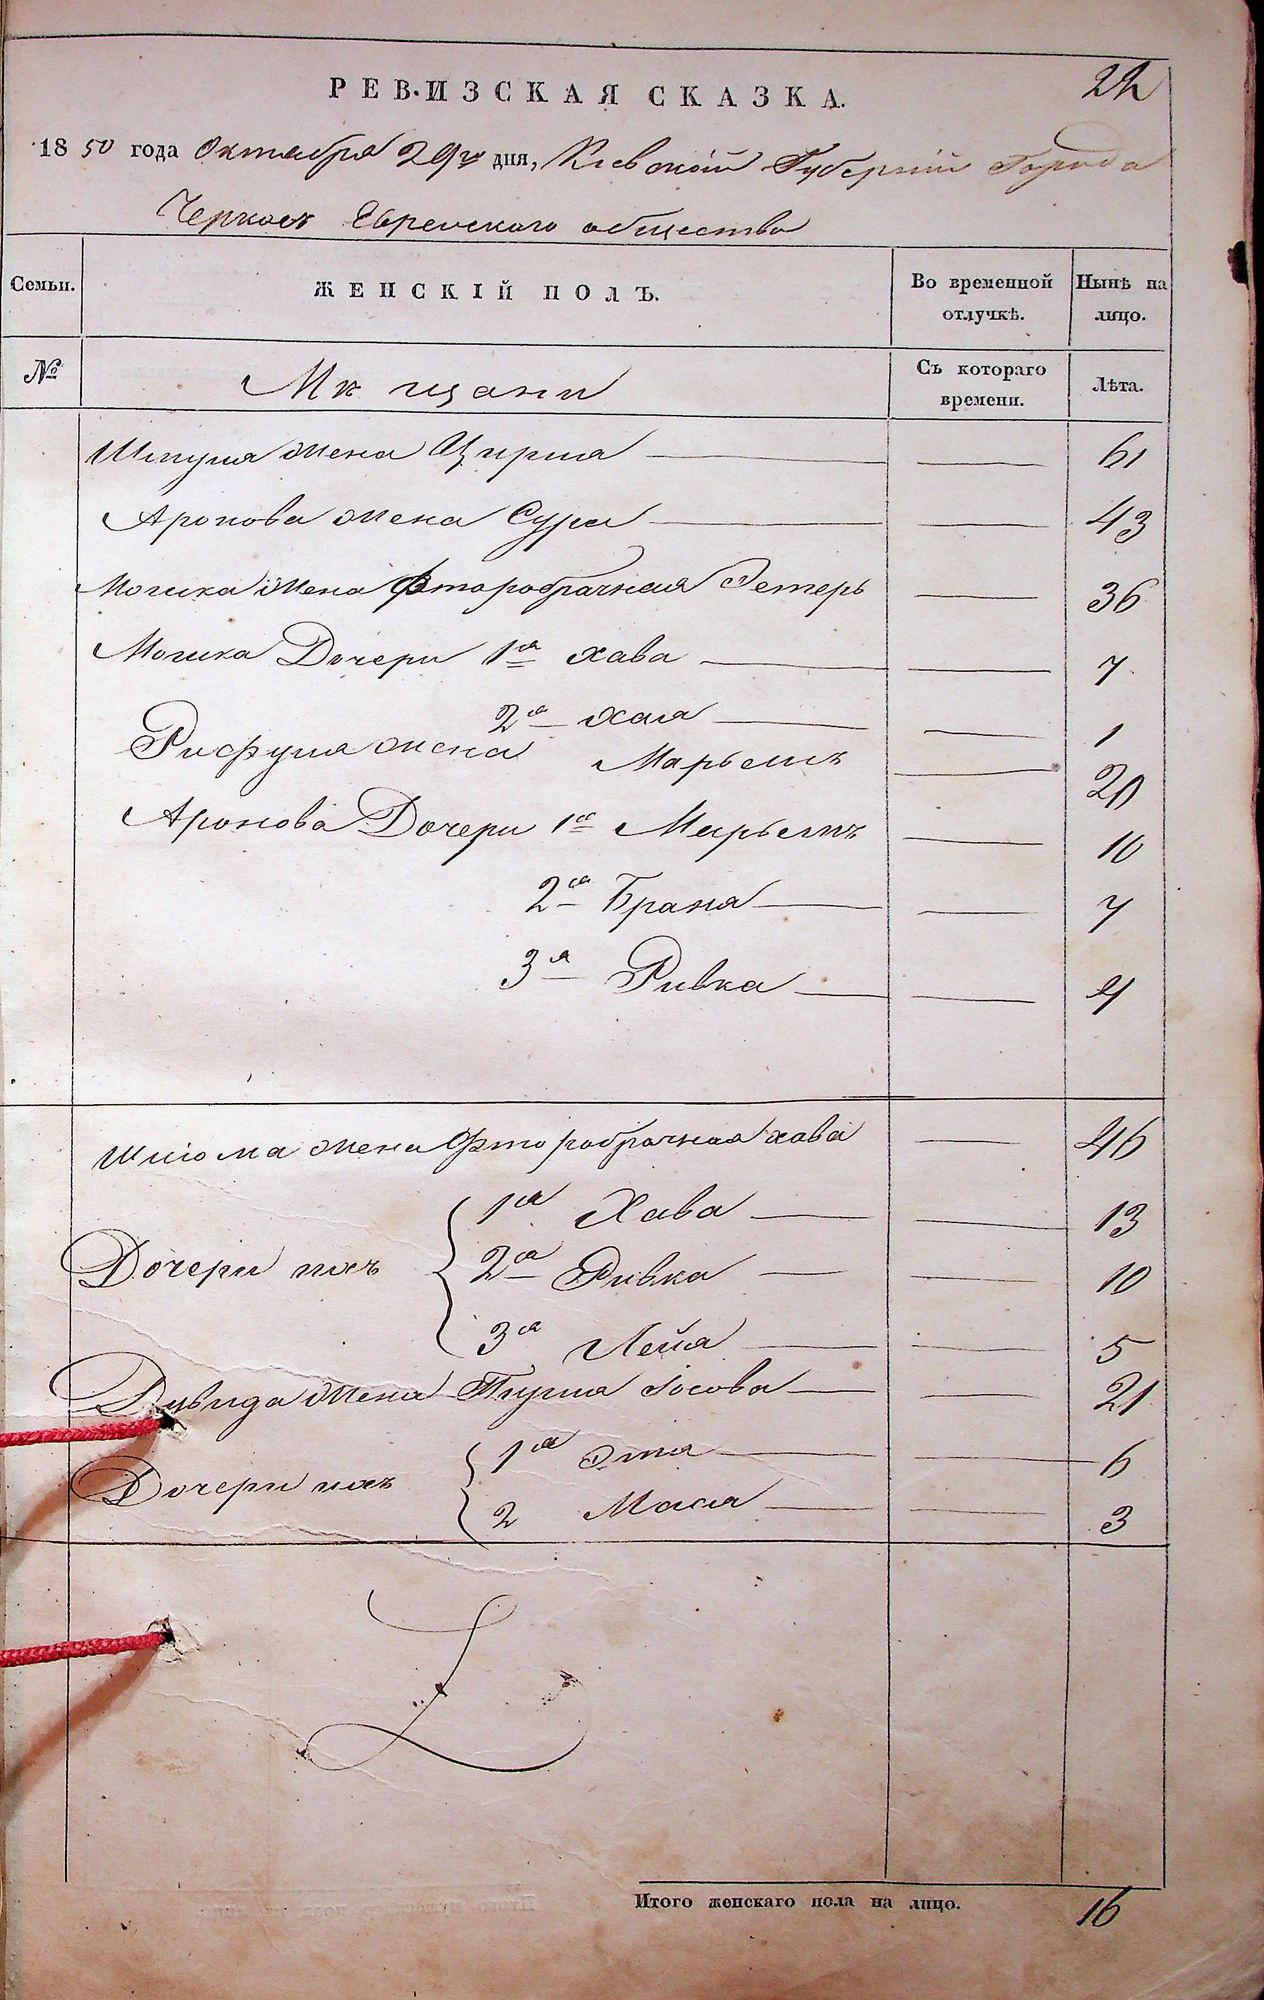 22
РЕВИЗСКАЯ СКАЗКА.
1850 года Октября 29го дня, Кіевской Губерніи Города
Черкасъ Еврейскаго общества
Семьи.
ЖЕНСКІЙ ПОЛЪ.
Во временной отлучкѣ.
Нынѣ на лицо.
№
Мѣщани
Съ котораго времени.
Лѣта.
Шмуля жена Цирля — — 61
Аронова жена Сура — — 43
Мошка жена Фторобрачная Эстеръ — 36
Мошка Дочери 1я Хава — — 7
2я Хая — — 1
жена Марьемъ — 20
Аронова Дочери 1я Марьемъ — 10
2я Брана — — 7
3я Ривка — — 4
Шлiома жена Фторобрачная хава — 46
Дочери ихъ
1я Хава — — 13
2я Ривка — — 10
3я Лейя — — 5
Давида жена — — 21
Дочери ихъ
1я Эта — — 6
2 Мася — — 3
Итого женскаго пола на лицо. 16